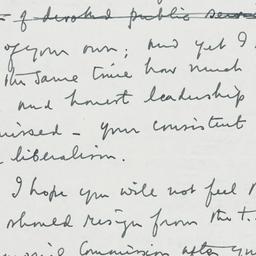 of devoted public
of your own; and yet I
the same time how much
and honest leadership
missed – your consistent
liberalism.
I hope you will not feel
should resign from the
Commission after